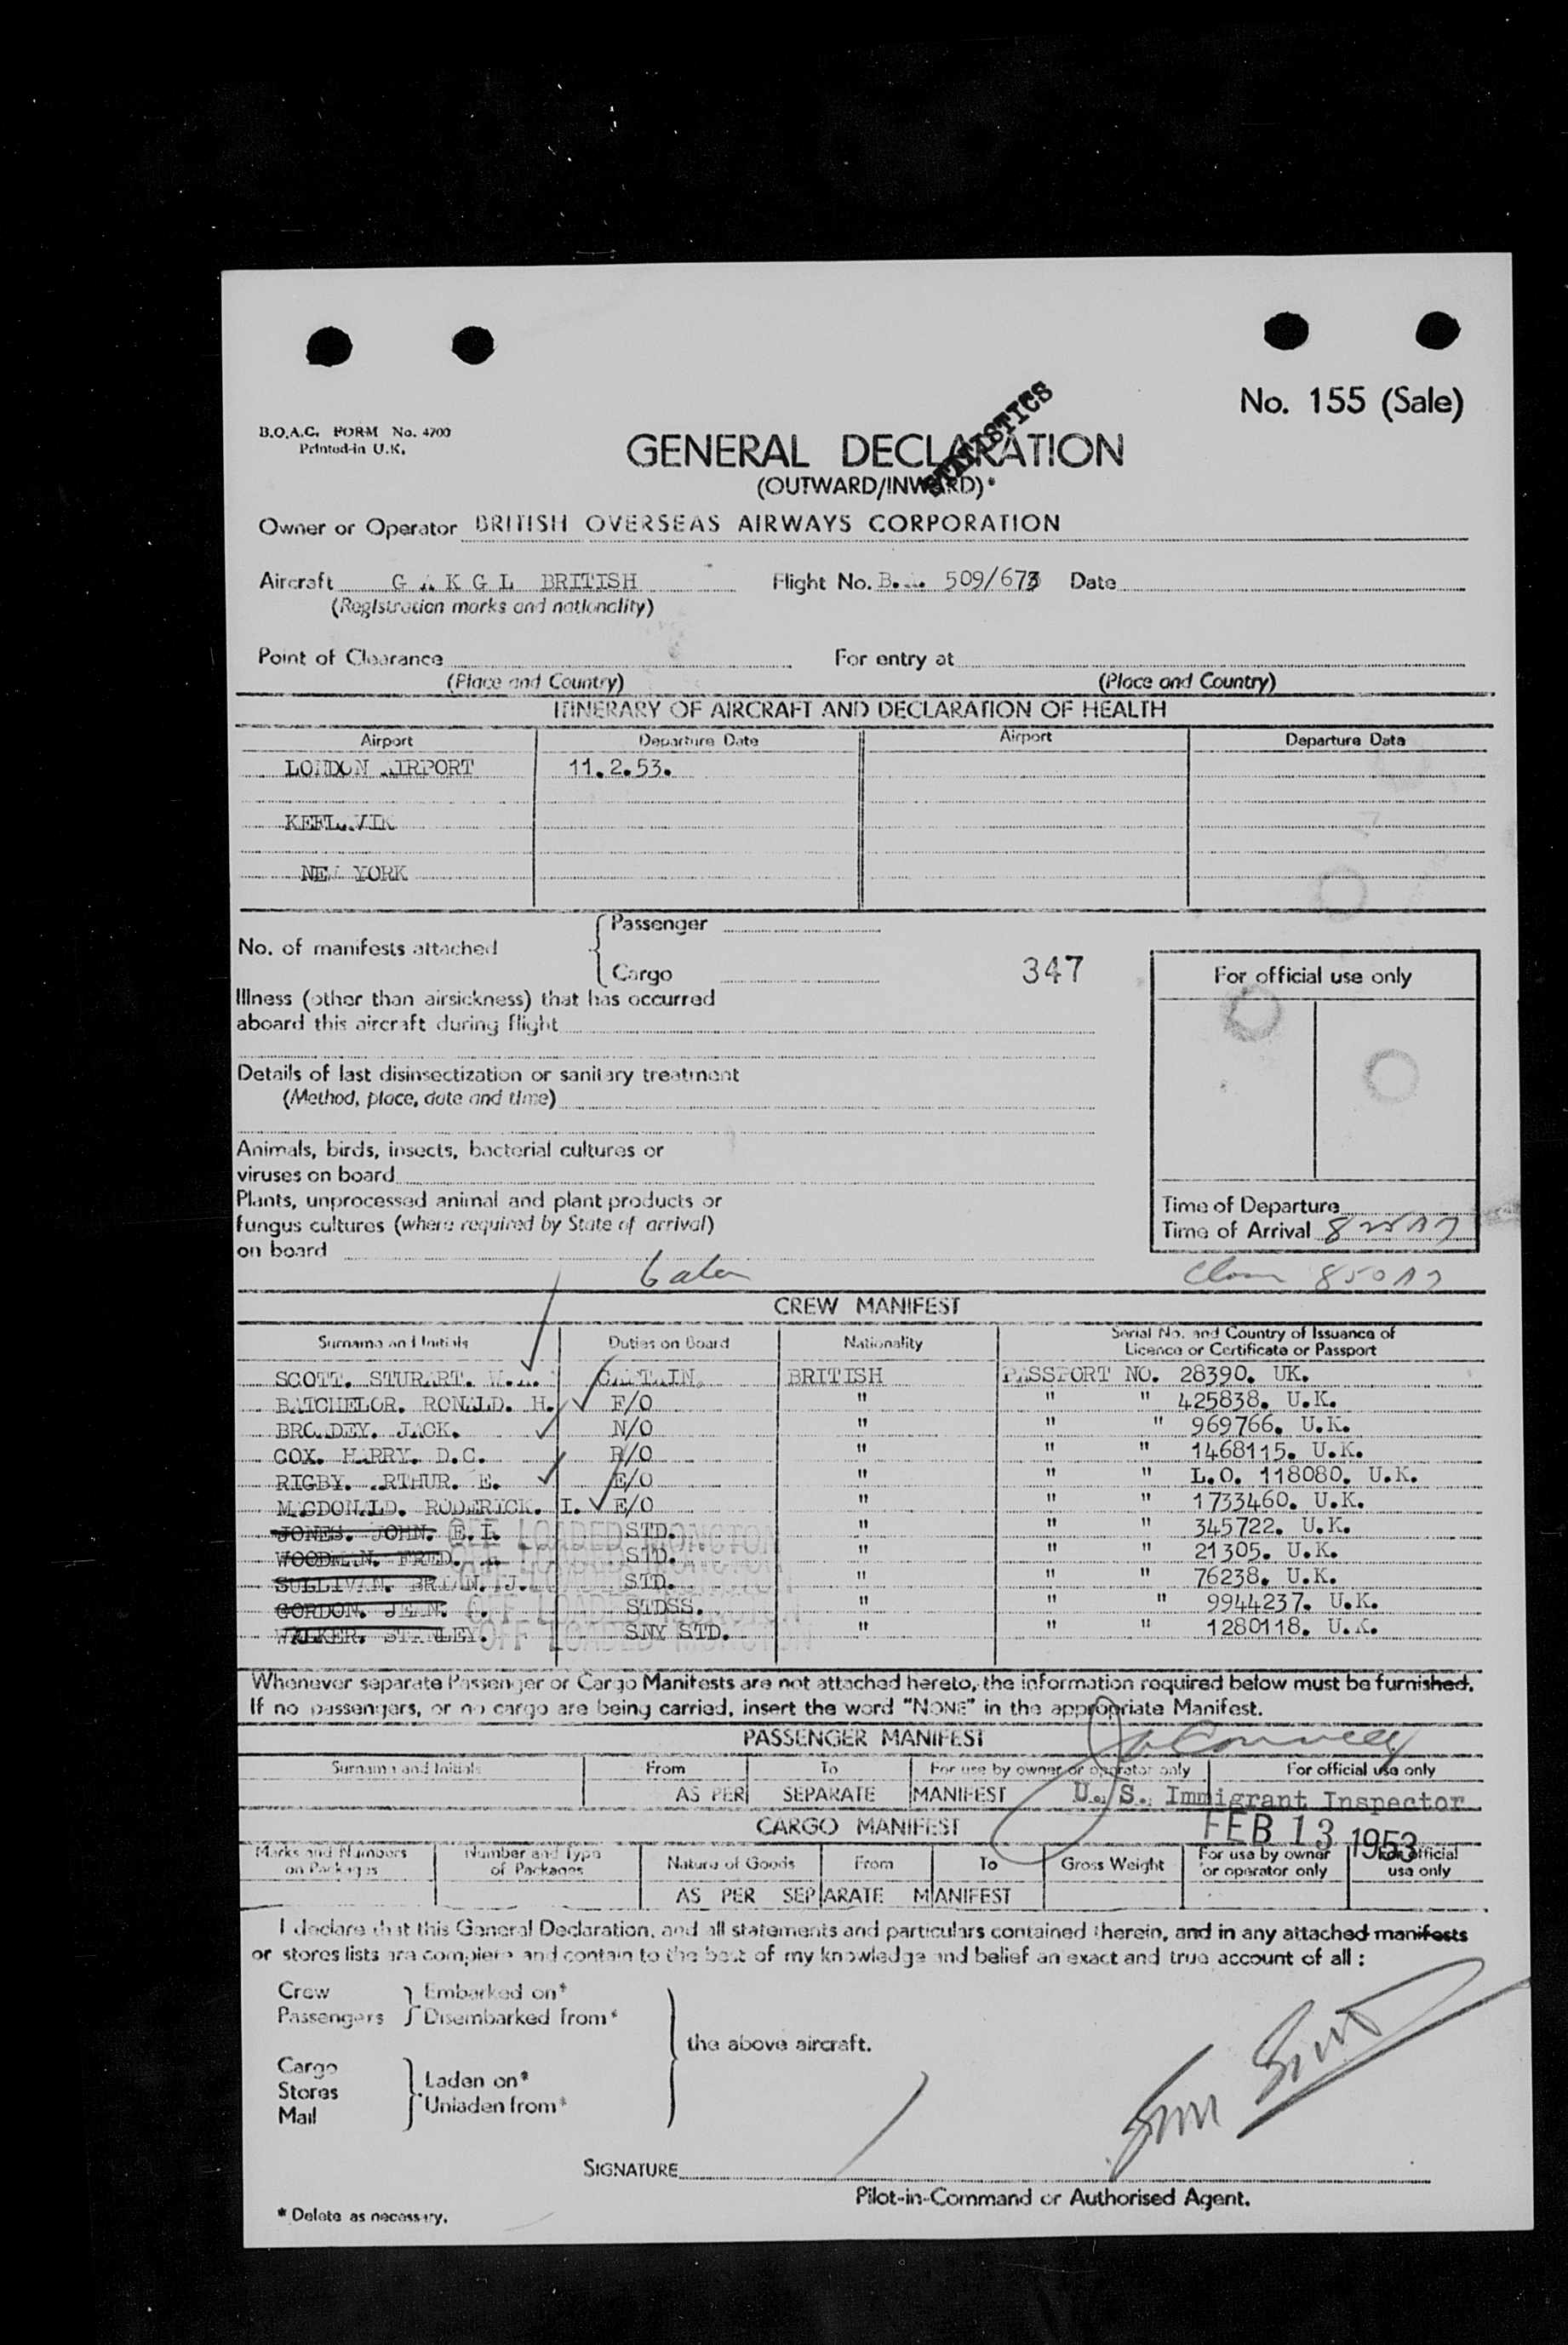 No. 155 (Sale)
B.O.A.C. FORM No. 4700
Printed in U.K.
STATISTICS
GENERAL DECLARATION
(OUTWARD/INWARD)*
Owner or Operator BRITISH OVERSEAS AIRWAYS CORPORATION
Aircraft G A K G L BRITISH Flight No. B.A. 509/673 Date
(Registration marks and nationality)
Point of Clearance For entry at
(Place and Country) (Place and Country)
ITINERARY OF AIRCRAFT AND DECLARATION OF HEALTH
Airport Departure Date Airport Departure Date
LONDON AIRPORT 11.2.53.
KEFLAVIK
NEW YORK
Passenger
No. of manifests attached
Cargo 347 For official use only
Illness (other than airsickness) that has occurred
aboard this aircraft during flight
Details of last disinsectization or sanitary treatment
(Method, place, date and time)
Animals, birds, insects, bacterial cultures or
viruses on board
Plants, unprocessed animal and plant products or
fungus cultures (where required by State of arrival)
on board
Time of Departure
Time of Arrival
850
CREW MANIFEST
Surname and Initials Duties on Board Nationality Serial No. and Country of Issuance of
Licence or Certificate or Passport
SCOTT. STURART. W.A. CAPTAIN. BRITISH PASSPORT NO. 28390. UK.
BATCHELOR. RONALD. H. F/O " " " 425838. U.K.
BROADEY. JACK. N/O " " " 969766. U.K.
COX. HARRY. D.C. R/O " " " 1468115. U.K.
RIGBY. ARTHUR. E. E/O " " " L.O. 118080. U.K.
MAGDONALD. RODERICK. I. E/O " " " 1733460. U.K.
JONES. JOHN. E.I. OFF LOADED MONCTON STD. " " " 345722. U.K.
WOODMAN. FRED. A. OFF LOADED MONCTON STD. " " " 21305. U.K.
SULLIVAN. BRIAN. J. OFF LOADED MONCTON STD. " " " 76238. U.K.
GORDON. JEAN. OFF LOADED MONCTON STDSS. " " " 9944237. U.K.
WALKER. STANLEY. OFF LOADED MONCTON SNY STD. " " " 1280118. U.K.
Whenever separate Passenger or Cargo Manifests are not attached hereto, the information required below must be furnished.
If no passengers, or no cargo are being carried, insert the word "NONE" in the appropriate Manifest.
PASSENGER MANIFEST
Surname and Initials From To For use by owner or operator only For official use only
AS PER SEPARATE MANIFEST U. S. Immigrant Inspector
CARGO MANIFEST FEB 13 1953
Marks and Numbers on Packages Number and Type of Packages Nature of Goods From To Gross Weight For use by owner or operator only For official use only
AS PER SEPARATE MANIFEST
I declare that this General Declaration, and all statements and particulars contained therein, and in any attached manifests
or stores lists are complete and contain to the best of my knowledge and belief an exact and true account of all :
Crew Embarked on*
Passengers Disembarked from*
the above aircraft.
Cargo
Stores Laden on*
Mail Unladen from*
SIGNATURE
Pilot-in-Command or Authorised Agent.
* Delete as necessary.